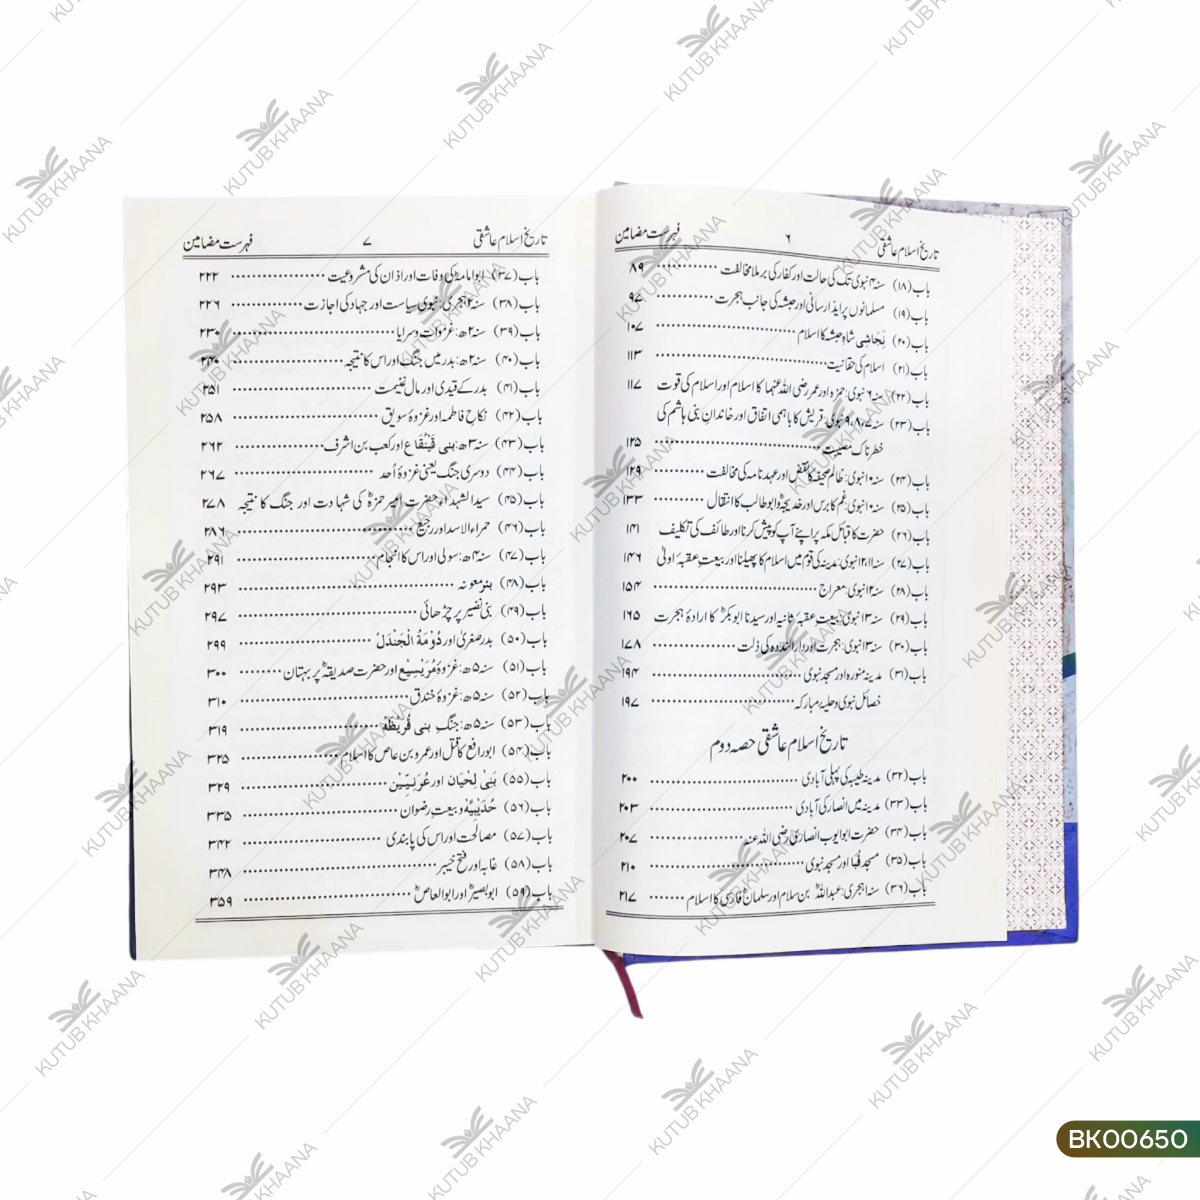 تاریخ اسلام عاشقی ۶ فہرست مضامین
باب (۱۸) سنہ ۴ نبوی تک کی حالت اور کفار کی برملا مخالفت ۸۹
باب (۱۹) مسلمانوں پر ایذا رسانی اور حبشہ کی جانب ہجرت ۹۷
باب (۲۰) نَجَاشِی شاہِ حبشہ کا اسلام ۱۰۷
باب (۲۱) اسلام کی حقانیت ۱۱۳
باب (۲۲) سنہ ۶ نبوی: حمزہ اور عمر رضی اللہ عنہما کا اسلام اور اسلام کی قوت ۱۱۷
باب (۲۳) سنہ ۷، ۸، ۹ نبوی: قریش کا باہمی اتفاق اور خاندانِ بنی ہاشم کی
خطرناک مصیبت ۱۲۵
باب (۲۴) سنہ ۱۰ نبوی: ظالم صحیفہ کا نقض اور عہد نامہ کی مخالفت ۱۲۹
باب (۲۵) سنہ ۱۰ نبوی: غم کا برس اور خدیجہؓ و ابو طالب کا انتقال ۱۳۳
باب (۲۶) حضرت کا قبائل مکہ پر اپنے آپ کو پیش کرنا اور طائف کی تکلیف ۱۴۱
باب (۲۷) سنہ ۱۱، ۱۲ نبوی: مدینہ کی قوم میں اسلام کا پھیلنا اور بیعتِ عقبۂ اولیٰ ۱۴۶
باب (۲۸) سنہ ۱۲ نبوی: معراج ۱۵۴
باب (۲۹) سنہ ۱۳ نبوی: بیعتِ عقبۂ ثانیہ اور سیدنا ابوبکرؓ کا ارادۂ ہجرت ۱۶۵
باب (۳۰) سنہ ۱۳ نبوی: ہجرت اور دارالندوہ کی ذلت ۱۷۸
باب (۳۱) مدینہ منورہ اور مسجد نبوی ۱۹۴
خصائل نبوی و حلیۂ مبارکہ ۱۹۷
تاریخ اسلام عاشقی حصہ دوم
باب (۳۲) مدینہ طیبہ کی پہلی آبادی ۲۰۰
باب (۳۳) مدینہ میں انصار کی آبادی ۲۰۳
باب (۳۴) حضرت ابو ایوب انصاری رضی اللہ عنہ ۲۰۷
باب (۳۵) مسجد قُبَا اور مسجد نبوی ۲۱۰
باب (۳۶) سنہ ۱ ہجری: عبداللہؓ بن سلام اور سلمانؓ فارسی کا اسلام ۲۱۷
تاریخ اسلام عاشقی ۷ فہرست مضامین
باب (۳۷) ابوامامہؓ کی وفات اور اذان کی مشروعیت ۲۲۲
باب (۳۸) سنہ ۲ ہجری: نبوی سیاست اور جہاد کی اجازت ۲۲۶
باب (۳۹) سنہ ۲ھ: غزوات و سرایا ۲۳۰
باب (۴۰) سنہ ۲ھ: بدر میں جنگ اور اس کا نتیجہ ۲۴۰
باب (۴۱) بدر کے قیدی اور مال غنیمت ۲۵۱
باب (۴۲) نکاحِ فاطمہ اور غزوۂ سویق ۲۵۸
باب (۴۳) سنہ ۳ھ: بنی قَیْنُقَاع اور کعب بن اشرف ۲۶۲
باب (۴۴) دوسری جنگ یعنی غزوۂ اُحد ۲۶۷
باب (۴۵) سید الشہداء حضرت امیر حمزہؓ کی شہادت اور جنگ کا نتیجہ ۲۷۸
باب (۴۶) حمراء الاسد اور رجیع ۲۸۶
باب (۴۷) سنہ ۴ھ: سولی اور اس کا انجام ۲۹۱
باب (۴۸) بئر معونہ ۲۹۳
باب (۴۹) بنی نضیر پر چڑھائی ۲۹۷
باب (۵۰) بدر صغریٰ اور دُوْمَةُ الْجَنْدَلْ ۲۹۹
باب (۵۱) سنہ ۵ھ: غزوۂ مُرَیْسِیْع اور حضرت صدیقہؓ پر بہتان ۳۰۰
باب (۵۲) سنہ ۵ھ: غزوۂ خندق ۳۱۰
باب (۵۳) سنہ ۵ھ: جنگِ بنی قُرَیْظَهْ ۳۱۹
باب (۵۴) ابو رافع کا قتل اور عمرو بن عاص کا اسلام ۳۲۵
باب (۵۵) بَنِی لِحْیَان اور عُرَنِیِّیْن ۳۲۹
باب (۵۶) حُدَیْبِیَّه و بیعتِ رضوان ۳۳۵
باب (۵۷) مصالحت اور اس کی پابندی ۳۴۲
باب (۵۸) غابہ اور فتح خیبر ۳۴۸
باب (۵۹) ابوبصیرؓ اور ابوالعاصؓ ۳۵۹
KUTUB KHAANA
BK00650